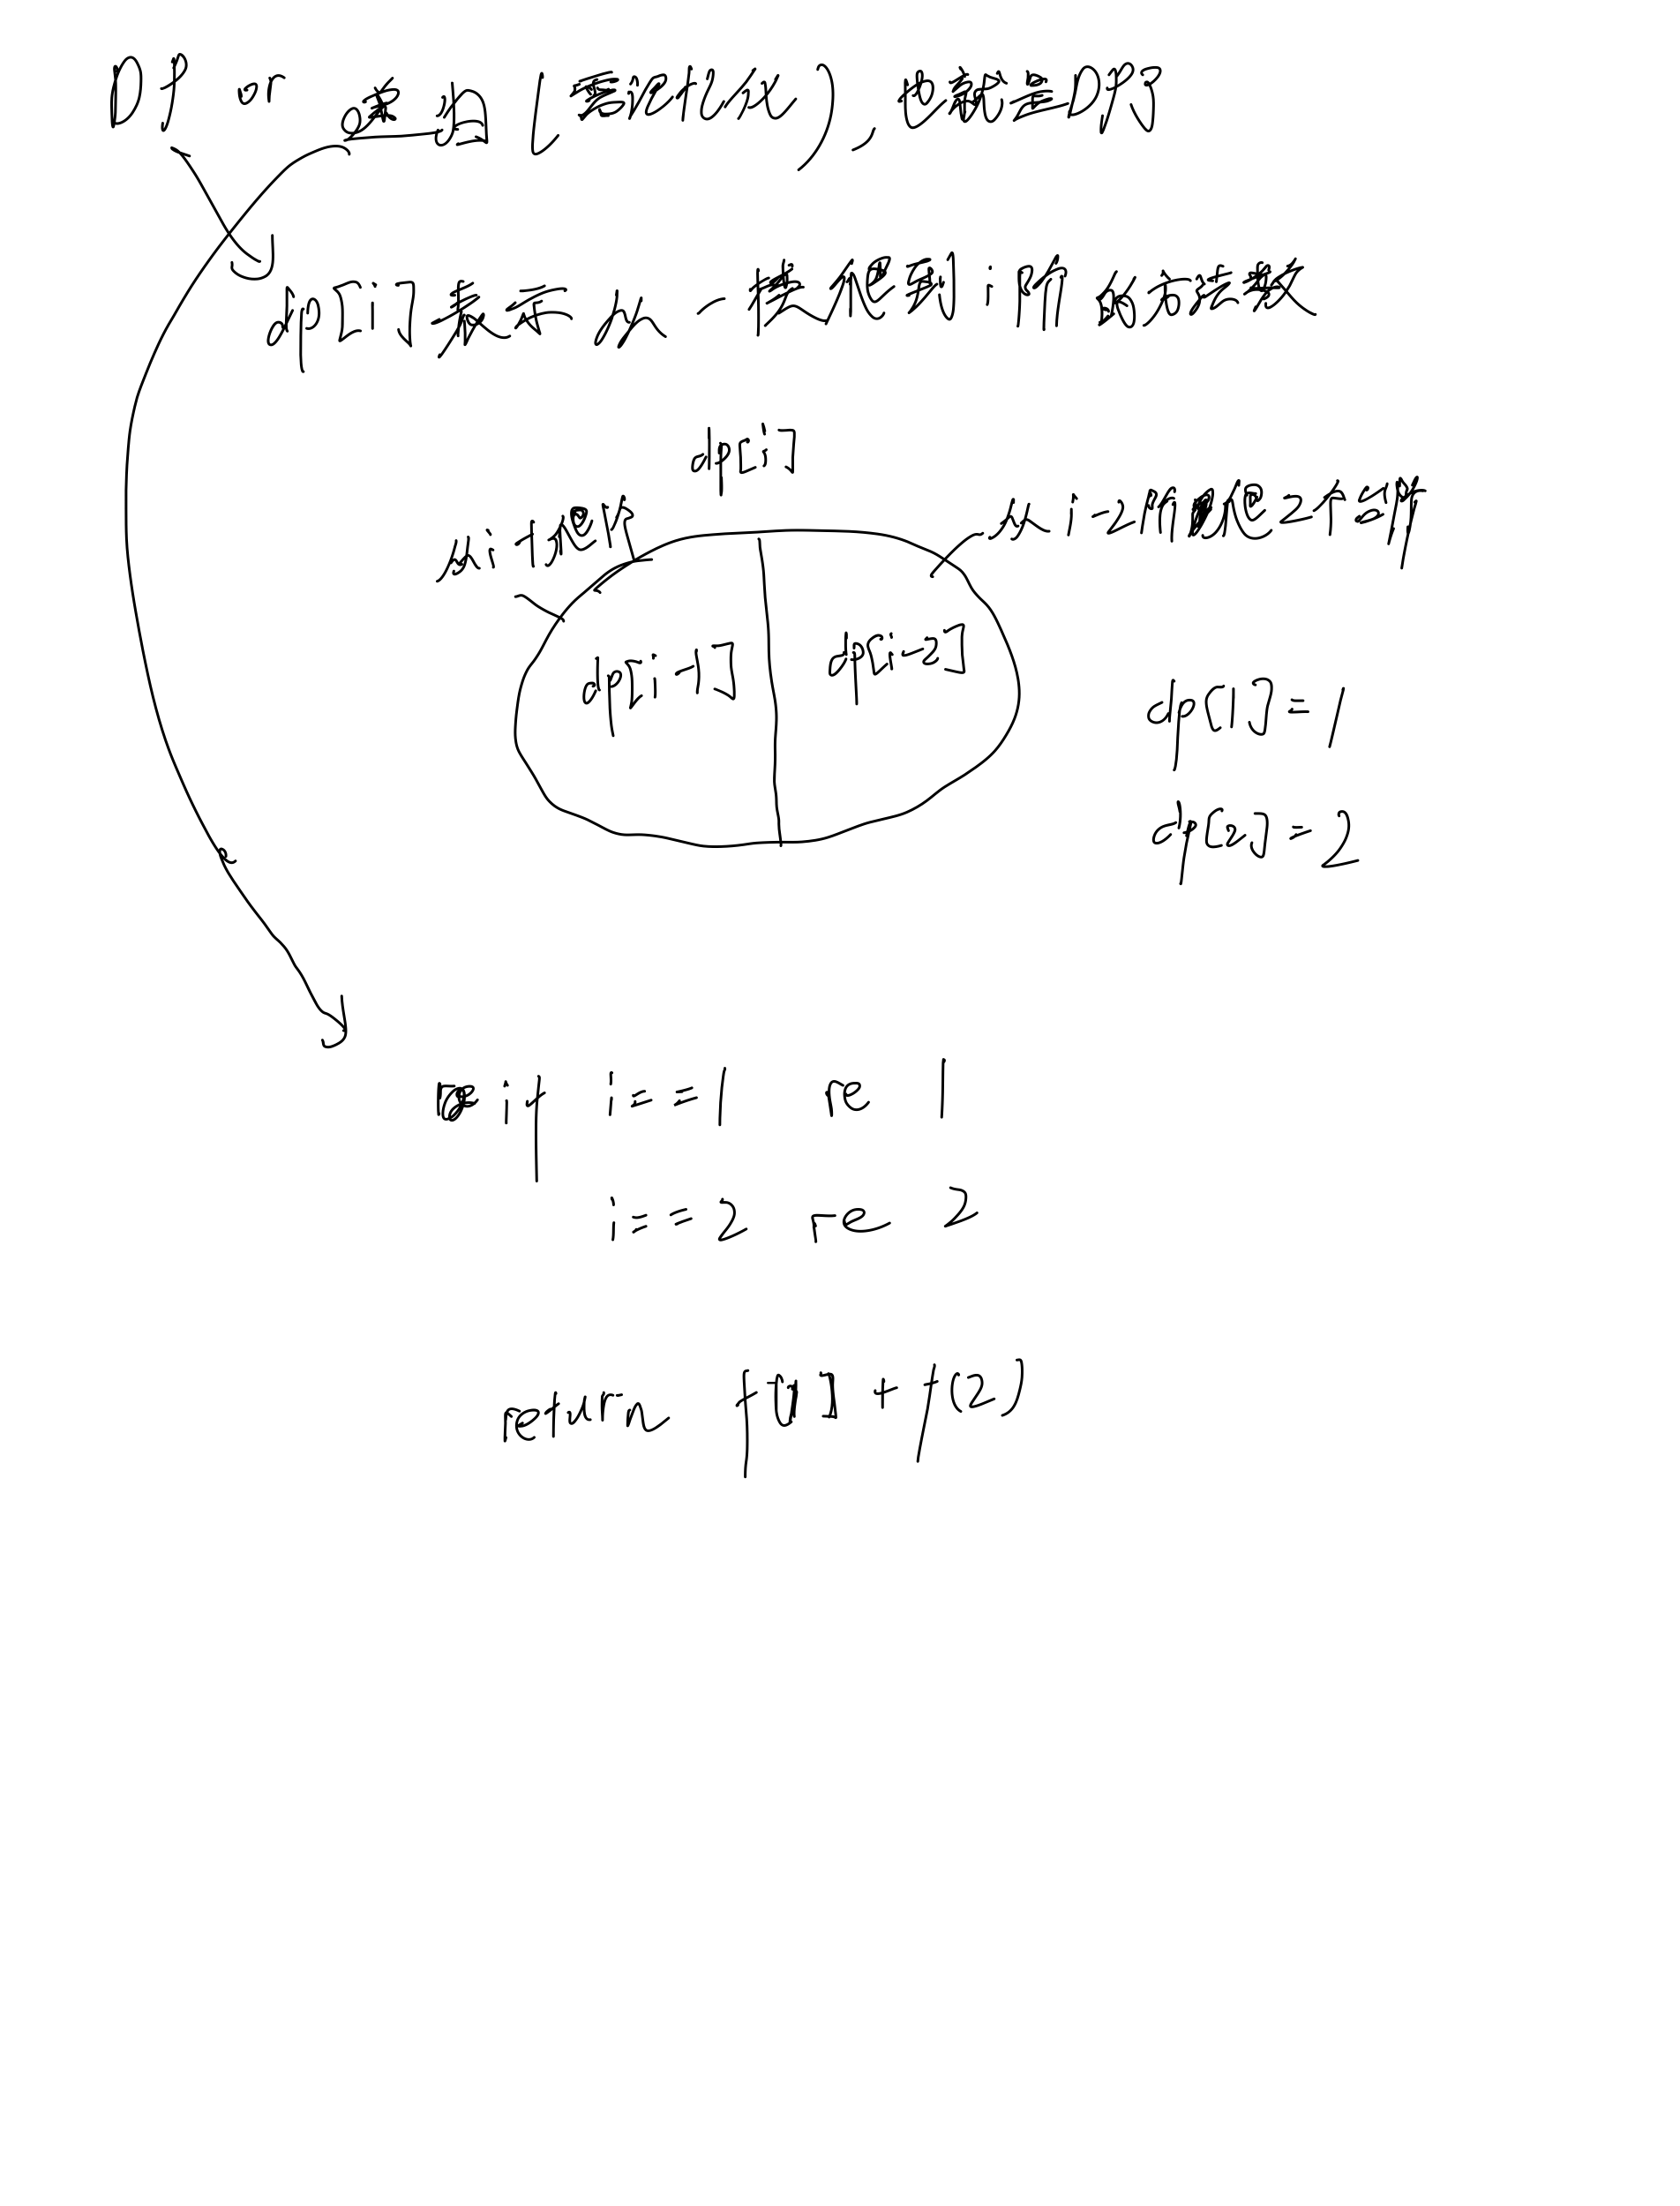 DP or 递归(要优化), 也就是DP了
dp[i]表示从一楼爬到i阶的方法数
dp[i]
从i-1爬1个
从i-2阶爬2个台阶
dp[i-1]
dp[i-2]
dp[1]=1
dp[2]=2
if i==1 re 1
i==2 re 2
return f(1)+f(2)